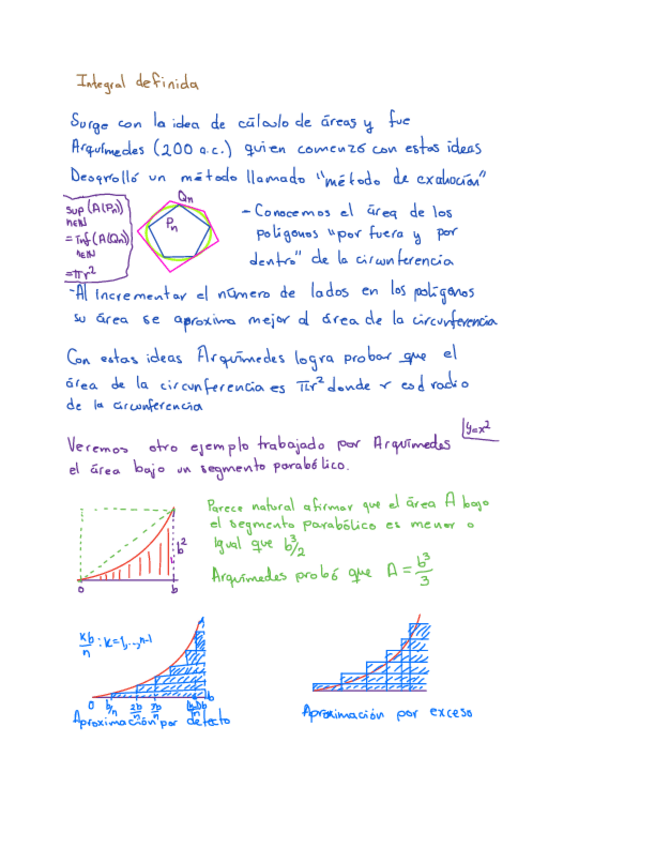 Integral definida
Surge con la idea de cálculo de áreas y fue
Arquímedes (200 a.c.) quien comenzó con estas ideas
Desarrolló un método llamado "método de exahución"
Sup (A(Pn))
n∈ℕ
= Inf (A(Qn))
n∈ℕ
=πr²
Qn
Pn
- Conocemos el área de los
polígonos "por fuera y por
dentro" de la circunferencia
-Al incrementar el número de lados en los polígonos
su área se aproxima mejor al área de la circunferencia
Con estas ideas Arquímedes logra probar que el
área de la circunferencia es πr² donde r es el radio
de la circunferencia
Veremos otro ejemplo trabajado por Arquímedes
y=x²
el área bajo un segmento parabólico.
Parece natural afirmar que el área A bajo
el segmento parabólico es menor o
igual que b³/2
Arquímedes probó que A = b³/3
b²
0 b
kb/n : k=1,...,n-1
0 b/n 2b/n b
Aproximación por defecto
Aproximación por exceso